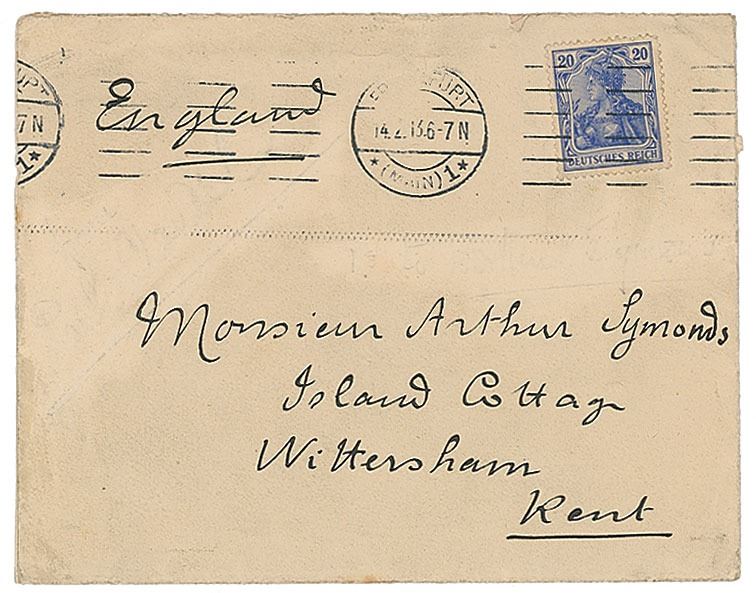 England
14.2.13.6-7N
(MAIN) 1
7N
1
20 20
DEUTSCHES REICH
Monsieur Arthur Symonds
Island Cottage
Wittersham
Kent